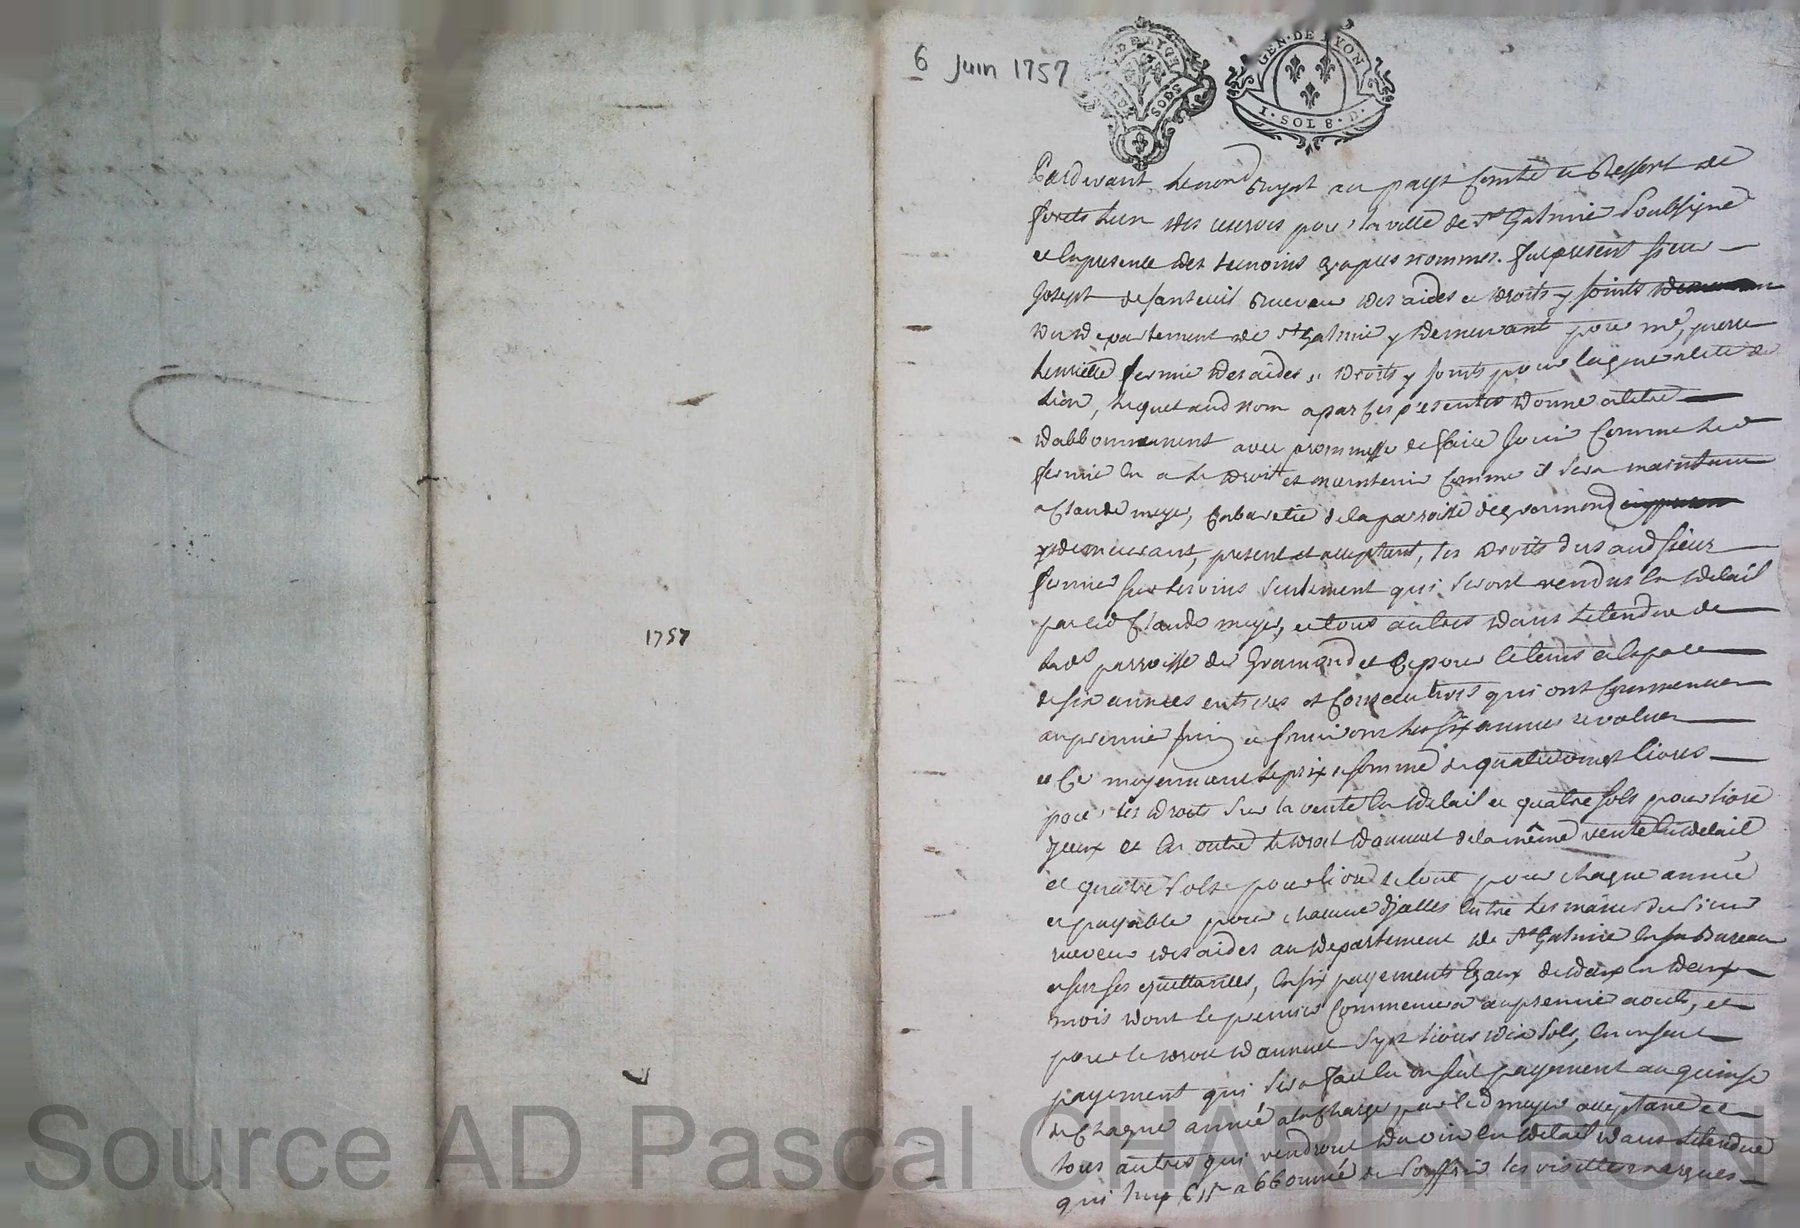 1757
6 Juin 1757
GEN·DE LYON
I·SOL 8·D·
Pardevant le not Royal au pays Comté et Ressort de
forets lun des reservés pour la ville de St Galmier soubsigné
et la presence des temoins cy apres nommes. fut present sieur
Joseph de santeuil Receveur des aides et droits y joints
du departement de St Galmier y demeurant pour me, pierre
henriet fermier des aides et droits y joints pour la generalité de
Lion, lequel aud nom a par ces presentes donné a titre
dabbonnement avec promesse de faire jouir Comme led
fermier en a le droit et maintenir Comme il sera maintenu
a Claude meyer, Cabaretier de la parroisse de gramond
y demeurant, present et acceptant, les droits dus aud sieur
fermier sur les vins seulement qui seront vendus en detail
par led Claude meyer, et tous autres dans letendue de
lad parroisse de Gramond et Ce pour le tems et espace
de six années entieres et Consecutives qui ont Commencé
au premier juin et finiront les six années revolues
et Ce moyennant le prix et somme de livres
pour les droits sur la vente en detail et quatre sols pour livre
dyceux et en outre le droit dannuel de la même vente en detail
et quatre sols pour livre le tout pour chaque année
et payable pour chacune dycelles entre les mains du sieur
receveur des aides au departement de St Galmier en son Bureau
et sur ses quittances, en six payements Egaux de deux en deux
mois dont le premier Commencera au premier aout, et
pour le droit dannuel sept livres dix sols, en un seul
payement qui sera fait en un seul payement au quinse
de chaque année a la Charge par led meyer acceptant et
tous autres qui vendront du vin en detail dans letendue
qui luy est abbonné de souffrir les visittes marques
Source AD Pascal CHARETRON